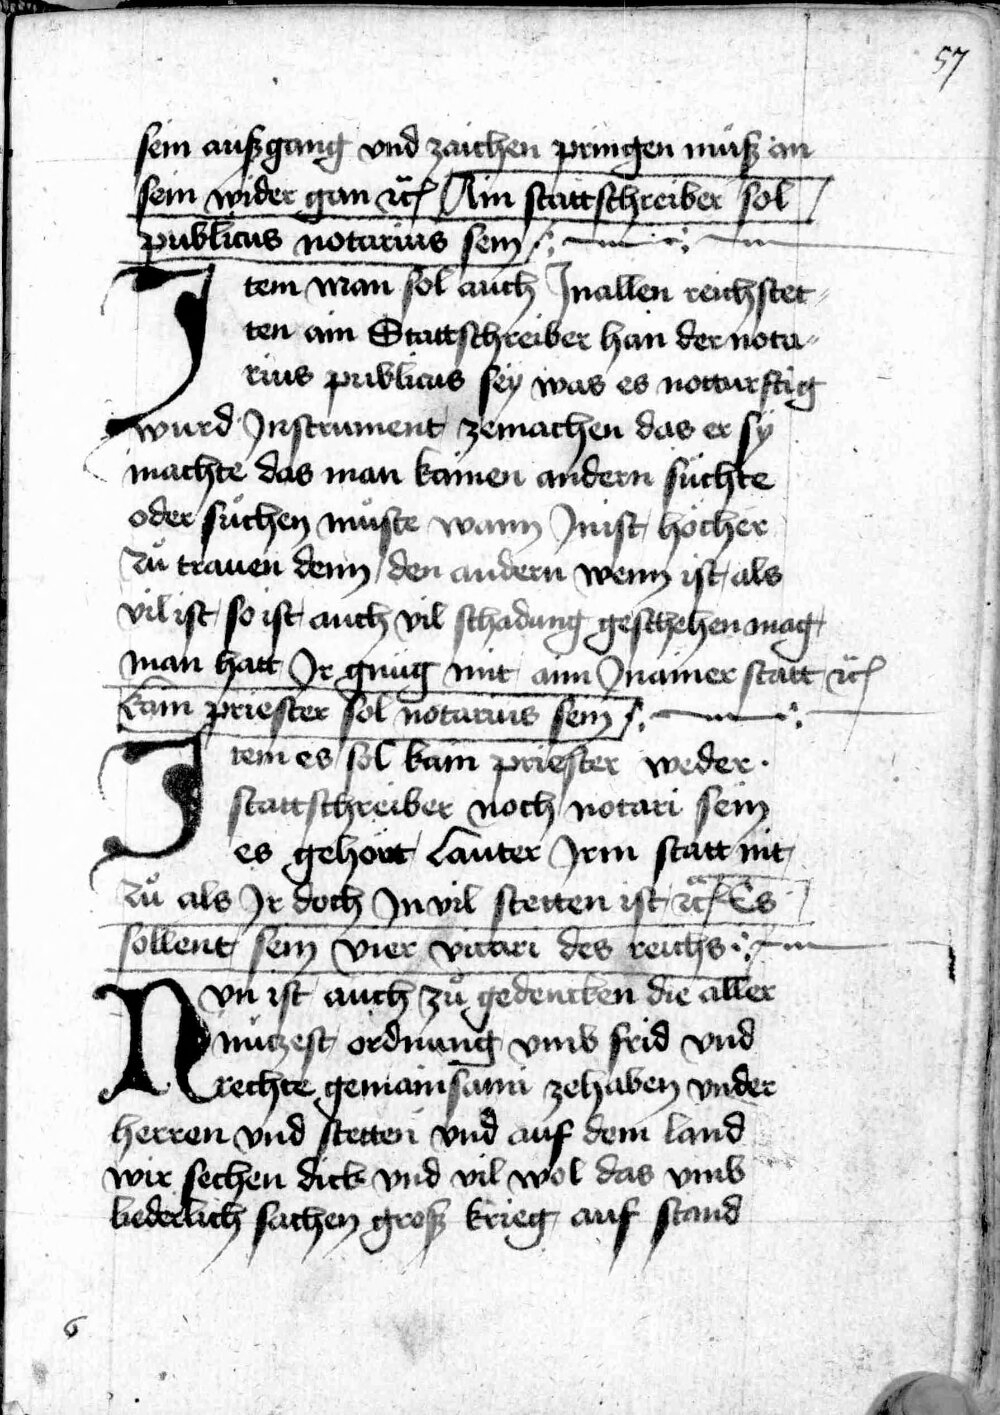 57
sein auszgang vnd zaichen pringen müsz an
sein wider gan ⁊c̃ Ain stattschreiber sol
publicus notarius sein
Item man sol auch Inallen reichstet-
ten ain Stattschreiber han der nota-
rius publicus sey was es notturftig
wurd Instrument zemachen das er sy
machte das man kainen andern sůchte
oder sůchen můste wann Inist höcher
zů trauen denn den andern wenn ist als
vil ist so ist auch vil schadung geschehen mag
man hatt Ir gnůg mit aim Inainer statt ⁊c̃
Kain priester sol notarius sein
Item es sol kain priester weder
stattschreiber noch notari sein
es gehört Lauter Irm statt nit
zů als Ir doch In vil stetten ist ⁊c̃ Es
sollent sein vier vicari des reichs
Nvn ist auch zů gedencken die aller
nützest ordnung vmb frid vnd
rechte gemainsami zehaben vnder
herren vnd stetten vnd auf dem land
wir sechen dick vnd vil wol das vmb
liederlich sachen grosz krieg auf stand
6